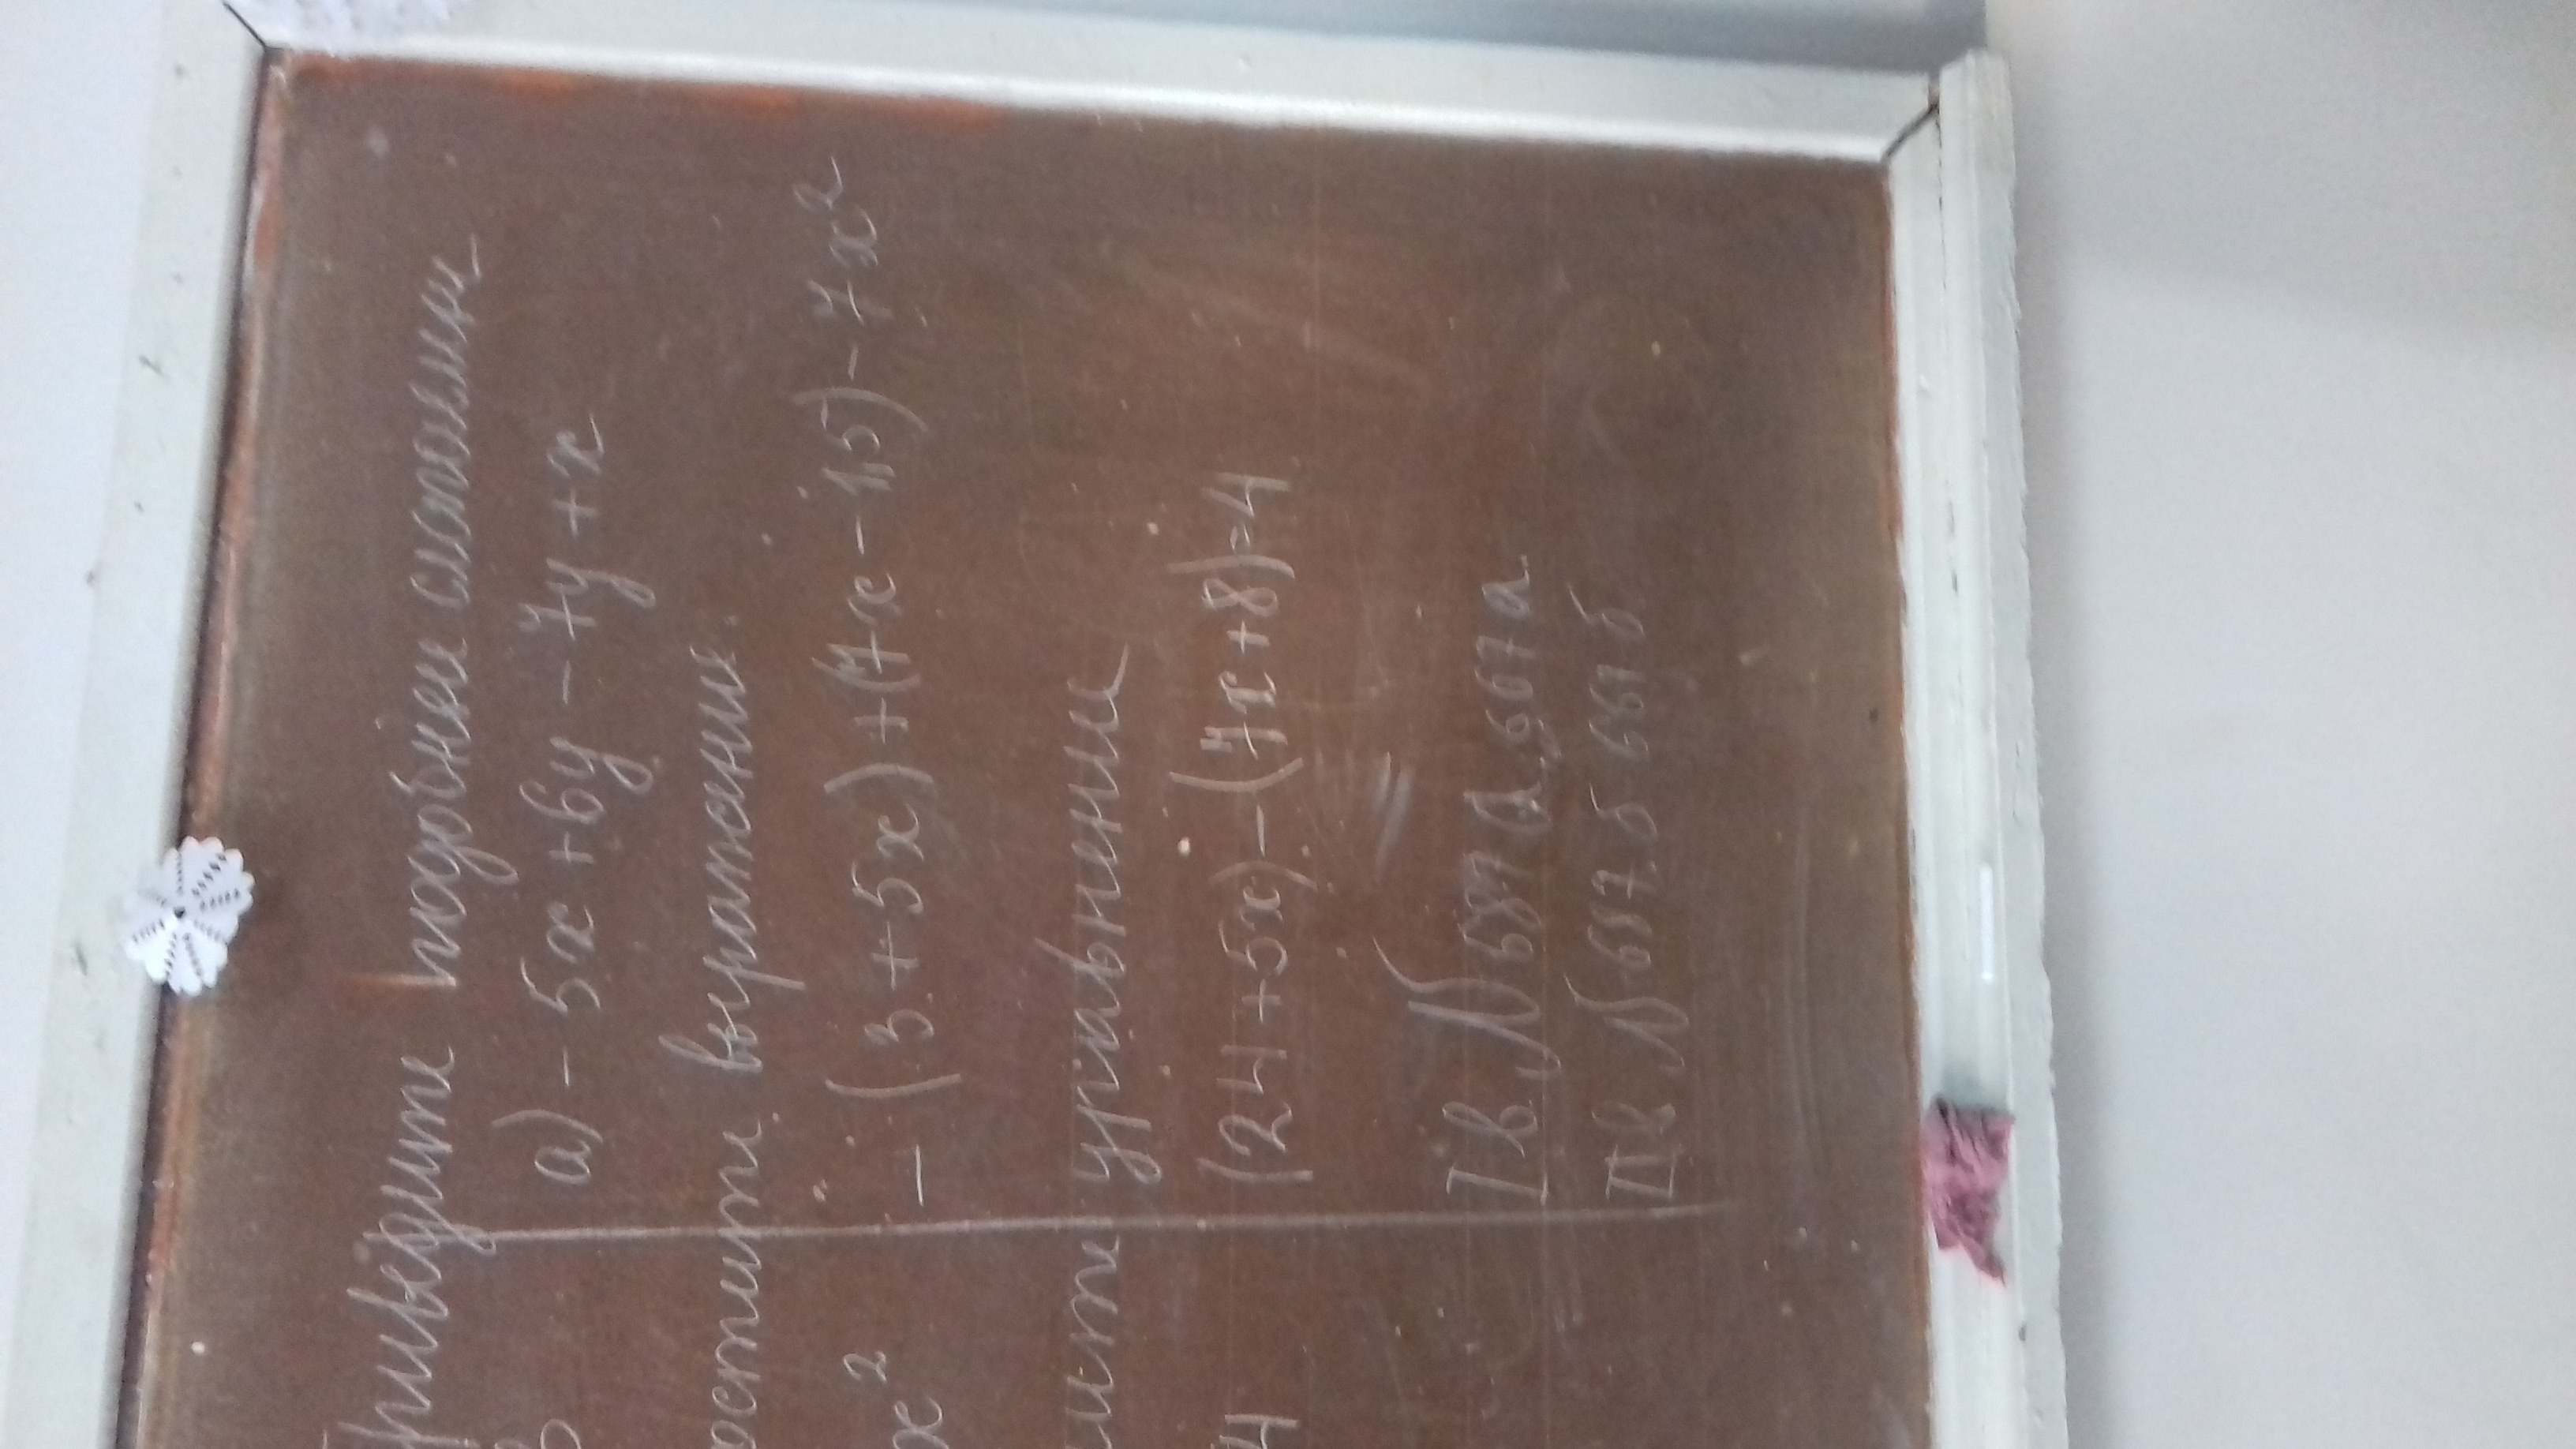 Приведите подобные слагаемые
а) - 5x + 6y - 7y + x
ростите выражение.
x² - (3 + 5x) + (7x - 1,5) - 7x²
ите уравнение
4 (24 + 5x) - (7x + 8) = 4
I в. № 687 а, 667 а
II в № 687 б 667 б